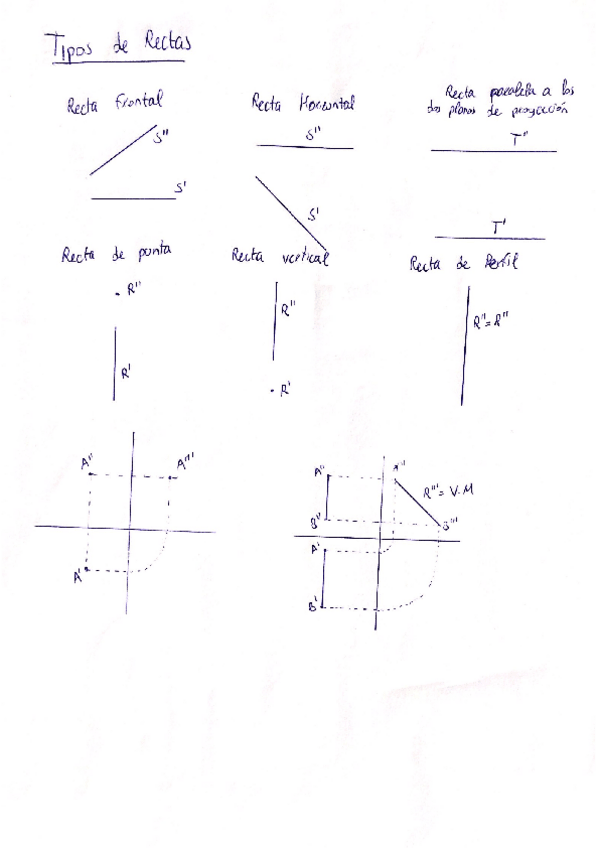 Tipos de Rectas
Recta Frontal
Recta Horizontal
Recta paralela a los
dos planos de proyección
S''
S'
S''
S'
T''
T'
Recta de punta
Recta vertical
Recta de Perfil
R''
R'
R''
R'
R''=R''
A''
A'''
A'
A''
A'''
R'''= V.M
B''
B'''
A'
B'